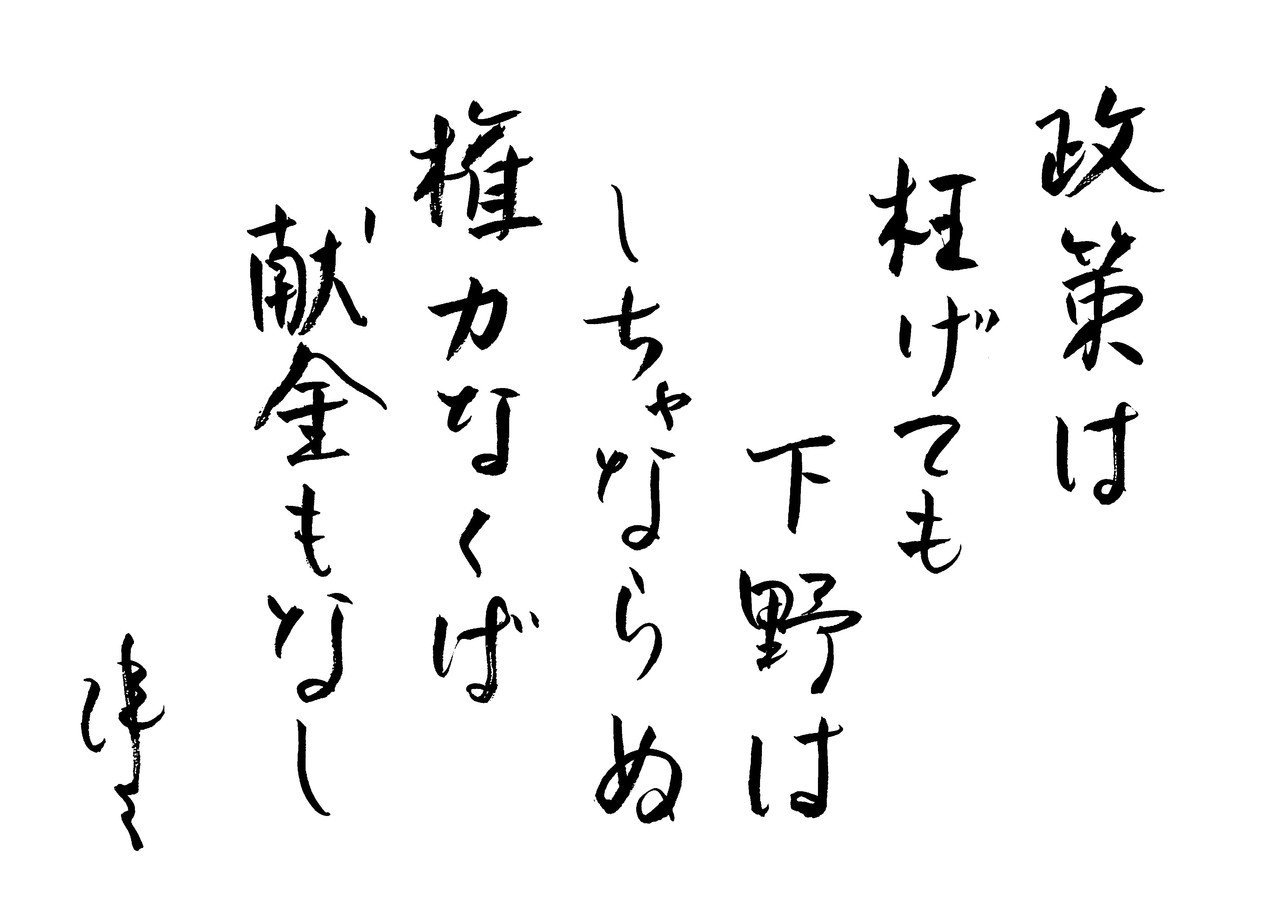 政策は
枉げても
下野は
しちゃならぬ
権力なくば
献金もなし